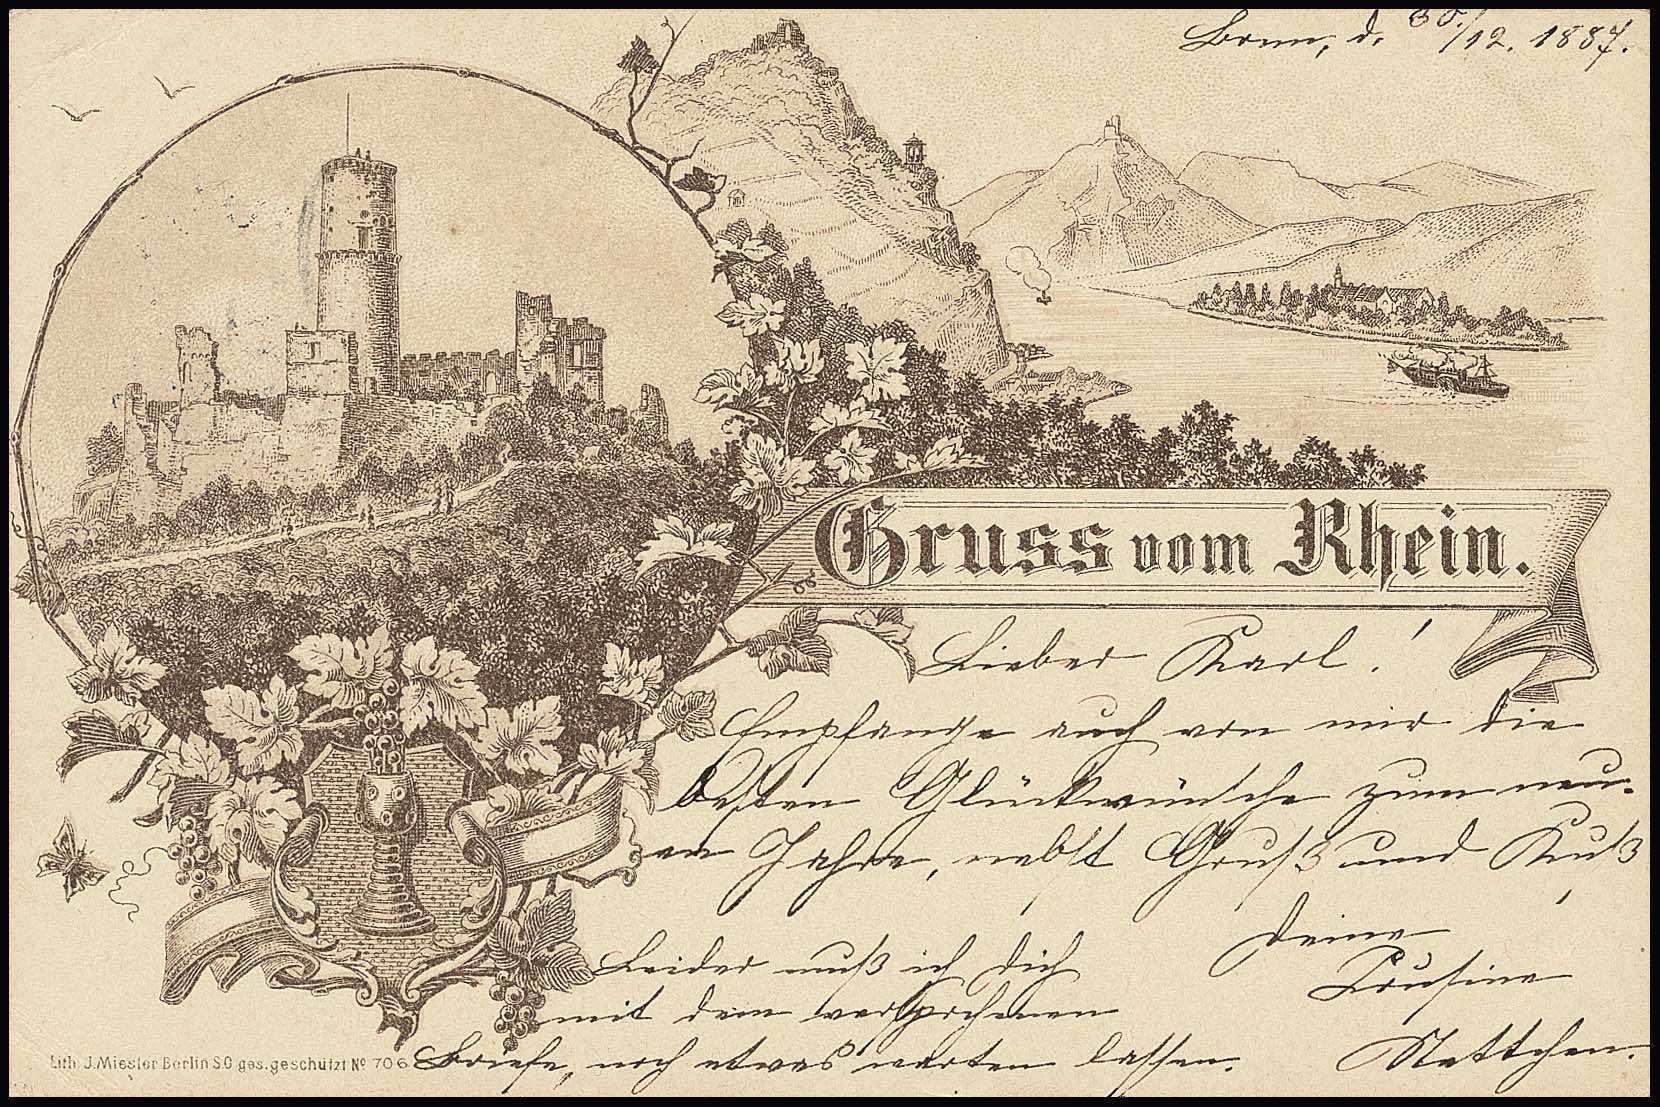 Bonn, d. 30./12. 1887.
Gruss vom Rhein.
Lieber Karl!
Empfange auch von mir die
besten Glückwünsche zum neu-
en Jahre, nebst Gruß und Kuß
Deine
Cousine
Nettchen.
Leider muß ich dich
mit dem versprochenen
Briefe, noch etwas warten lassen.
Lith. J. Miesler Berlin S.O ges. geschützt No 706